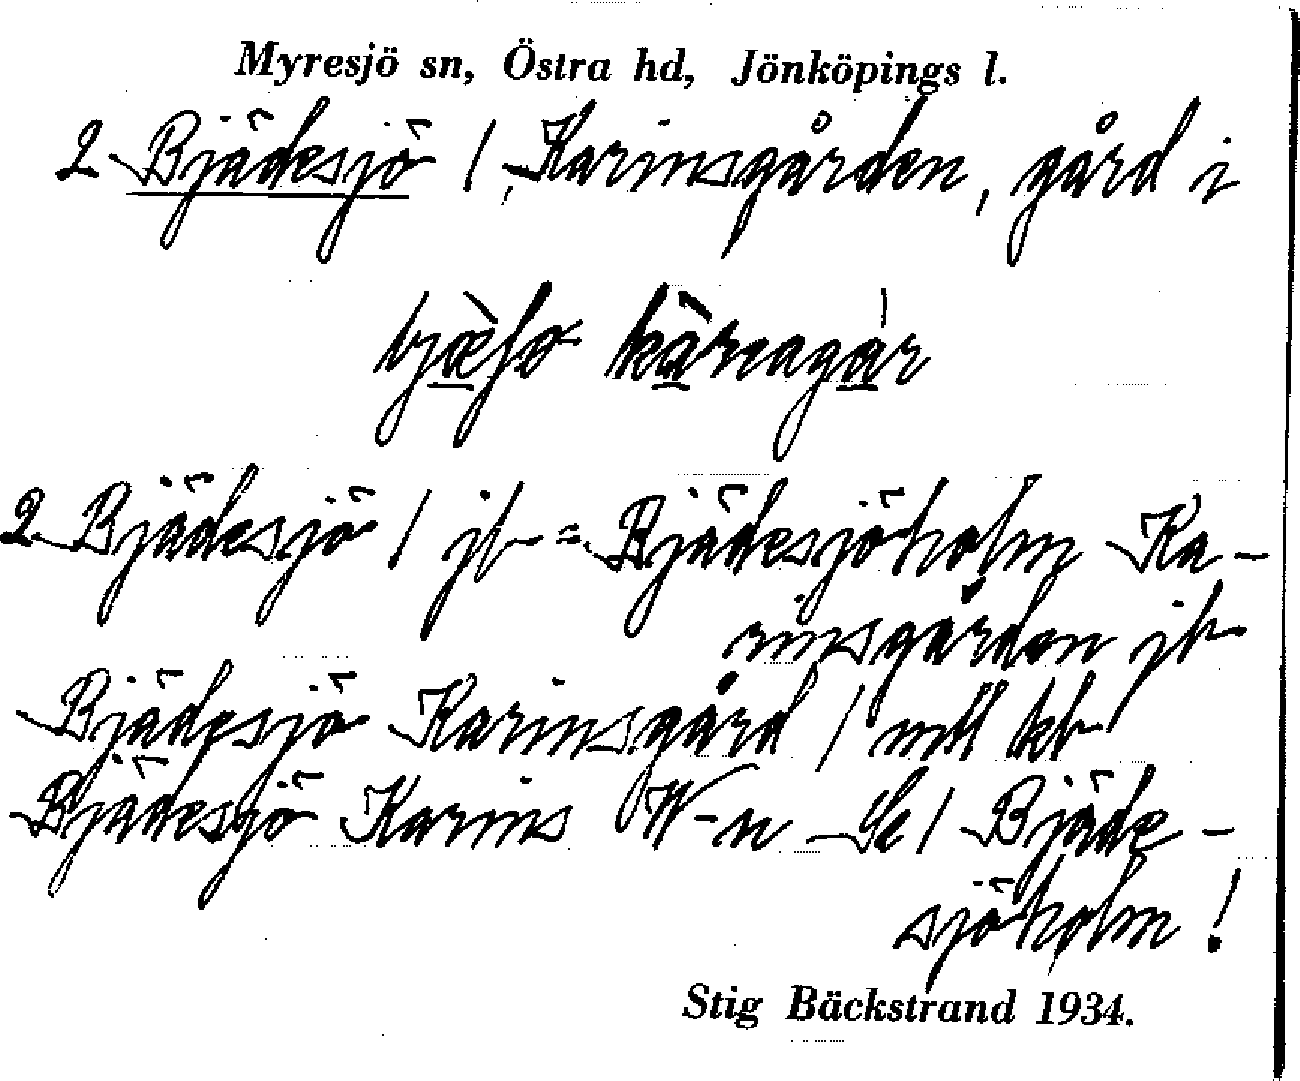 Myresjö sn, Östra hd, Jönköpings l.
2 Bjädesjö / Karinsgården, gård i
2 Bjädesjö / jb = Bjädesjöholm Ka-
rinsgården jb
Bjädesjö Karinsgård / mtl kb
Bjädesjö Karins W-n Se / Bjäde-
sjöholm !
Stig Bäckstrand 1934.